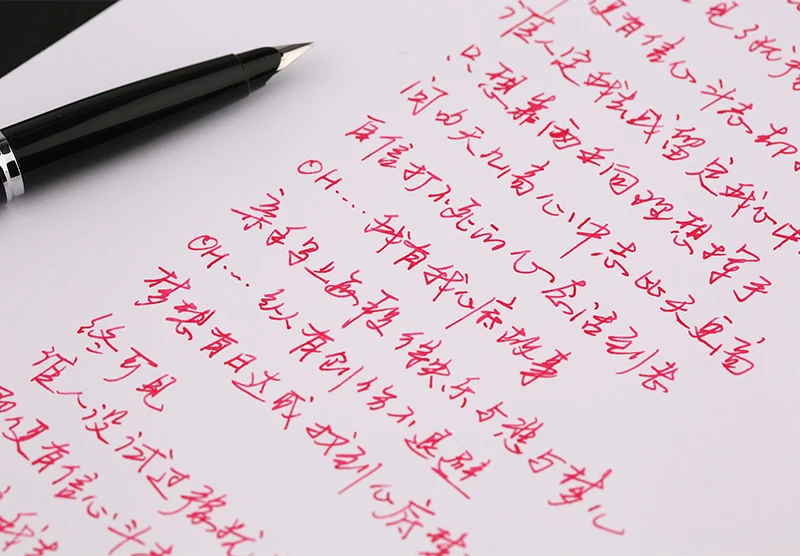 使有信心斗志却
谁人定我去或留定我心中
只想靠两手向理想挥手
问句天几高心中志比天更高
自信打不死的心态活到老
OH...我有我心底故事
亲手写上每段得失乐与悲与梦儿
OH...纵有创伤不退避
梦想有日达成找到心底梦
终可见
谁人没试过犹
即使有信心斗志